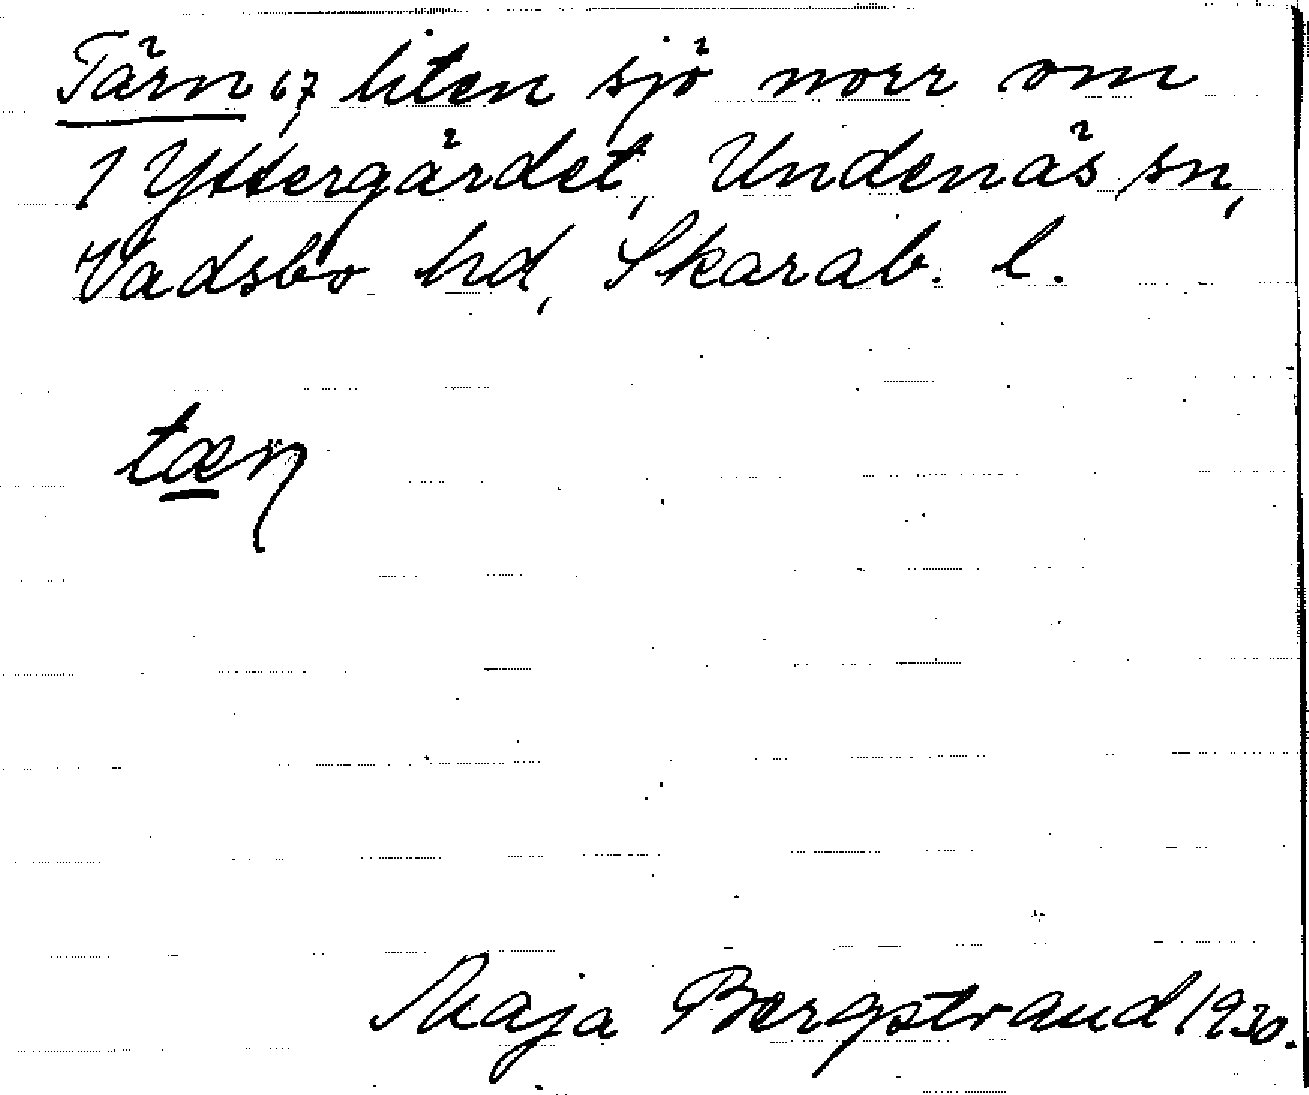 Tärn 67 liten sjö norr om
1 Yttergärdet, Undenäs sn,
Vadsbo hd, Skarab. l.
tæɳ
Maja Bergstrand 1930.